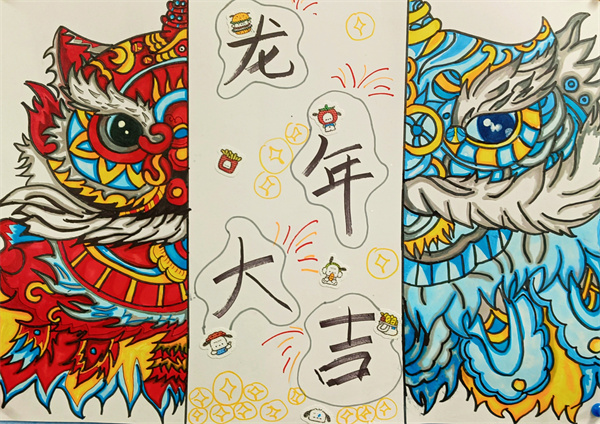 龙
年
大
吉